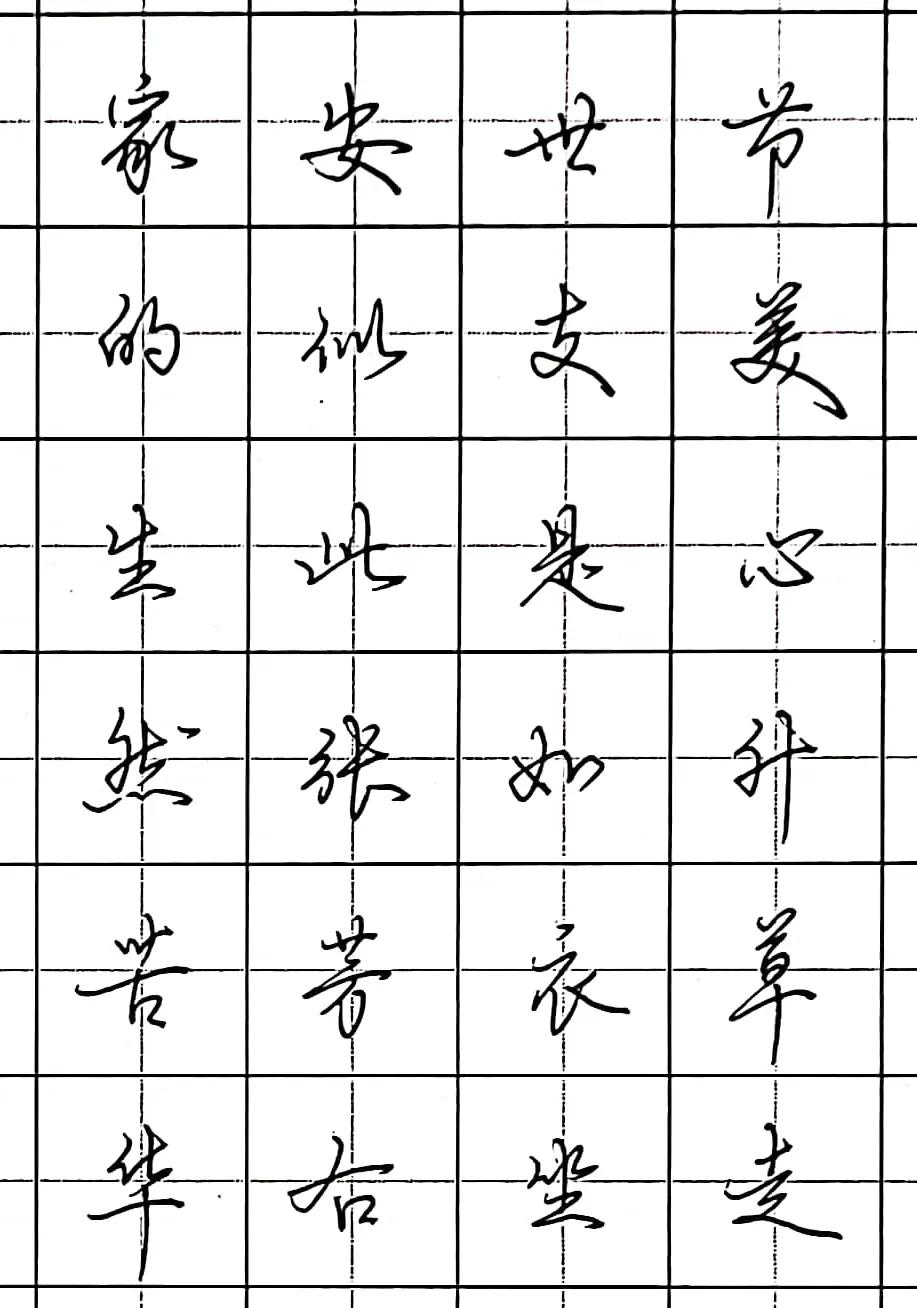 家安世节
的似支美
生此是心
然张如升
苦芳衣草
华右坐走